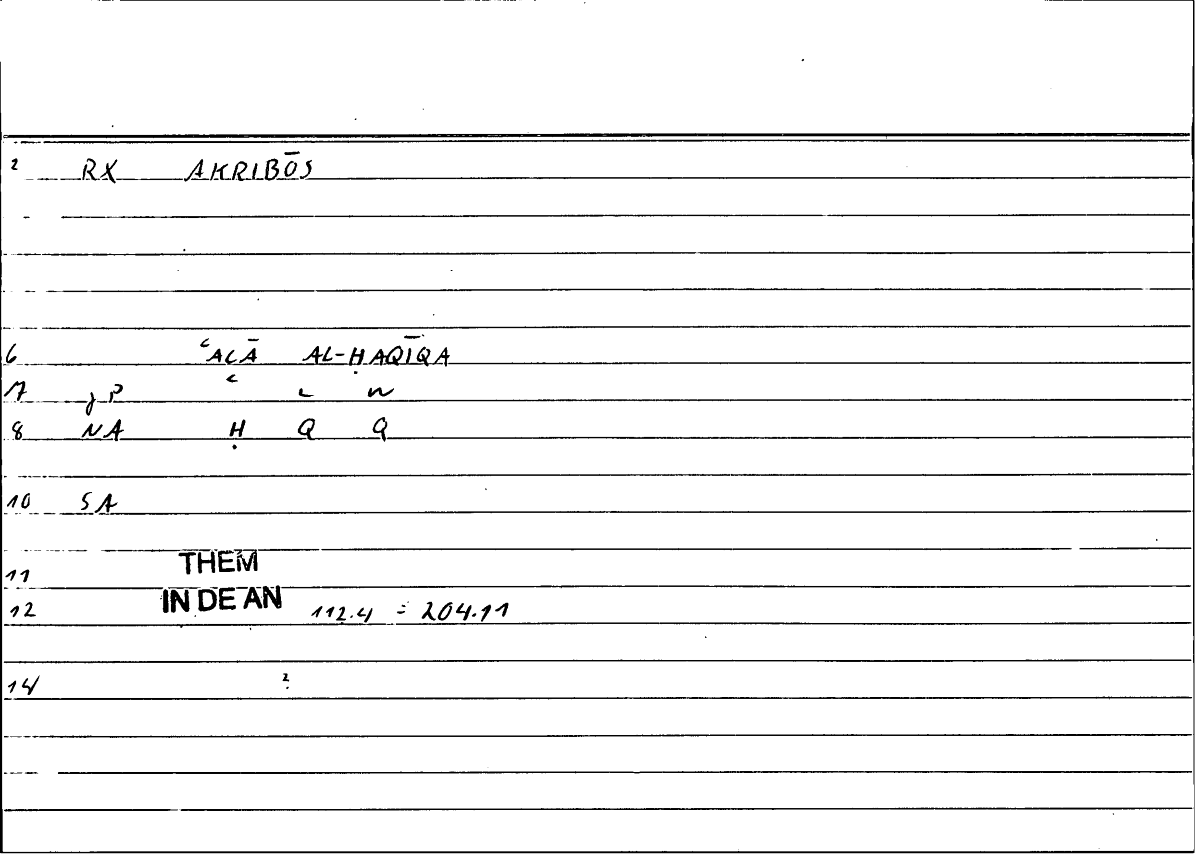 2 RX AKRIBŌS
6 ʿALĀ AL-ḤAQĪQA
7 jP ʿ L N
8 NA Ḥ Q Q
10 SA
11 THEM
12 IN DE AN 112.4 = 204.11
14 2.